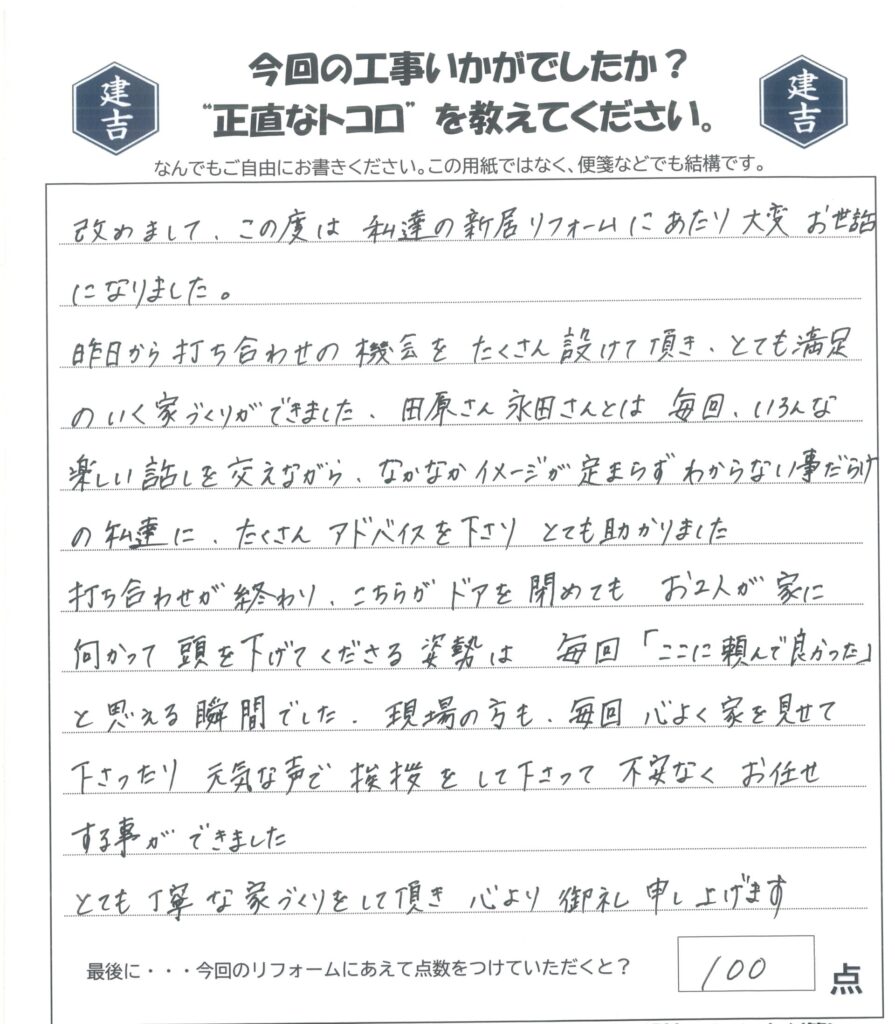 建吉
今回の工事いかがでしたか？
建吉
"正直なトコロ"を教えてください。
なんでもご自由にお書きください。この用紙ではなく、便箋などでも結構です。
改めまして、この度は 私達の新居リフォームにあたり 大変 お世話
になりました。
昨日から打ち合わせの 機会を たくさん 設けて頂き、とても満足
のいく家づくりができました、田原さん 永田さんとは 毎回、いろんな
楽しい 話しを交えながら、なかなかイメージが定まらず わからない事だらけ
の私達に、たくさん アドバイスを下さり とても助かりました
打ち合わせが終わり、こちらが ドアを閉めても お2人が 家に
向かって 頭を下げてくださる 姿勢は 毎回「ここに頼んで良かった」
と思える瞬間でした、現場の方も、毎回 心よく家を見せて
下さったり 元気な声で 挨拶をして下さって 不安なく お任せ
する事ができました
とても 丁寧な家づくりをして頂き 心より 御礼 申し上げます
最後に・・・今回のリフォームにあえて点数をつけていただくと？ 100 点